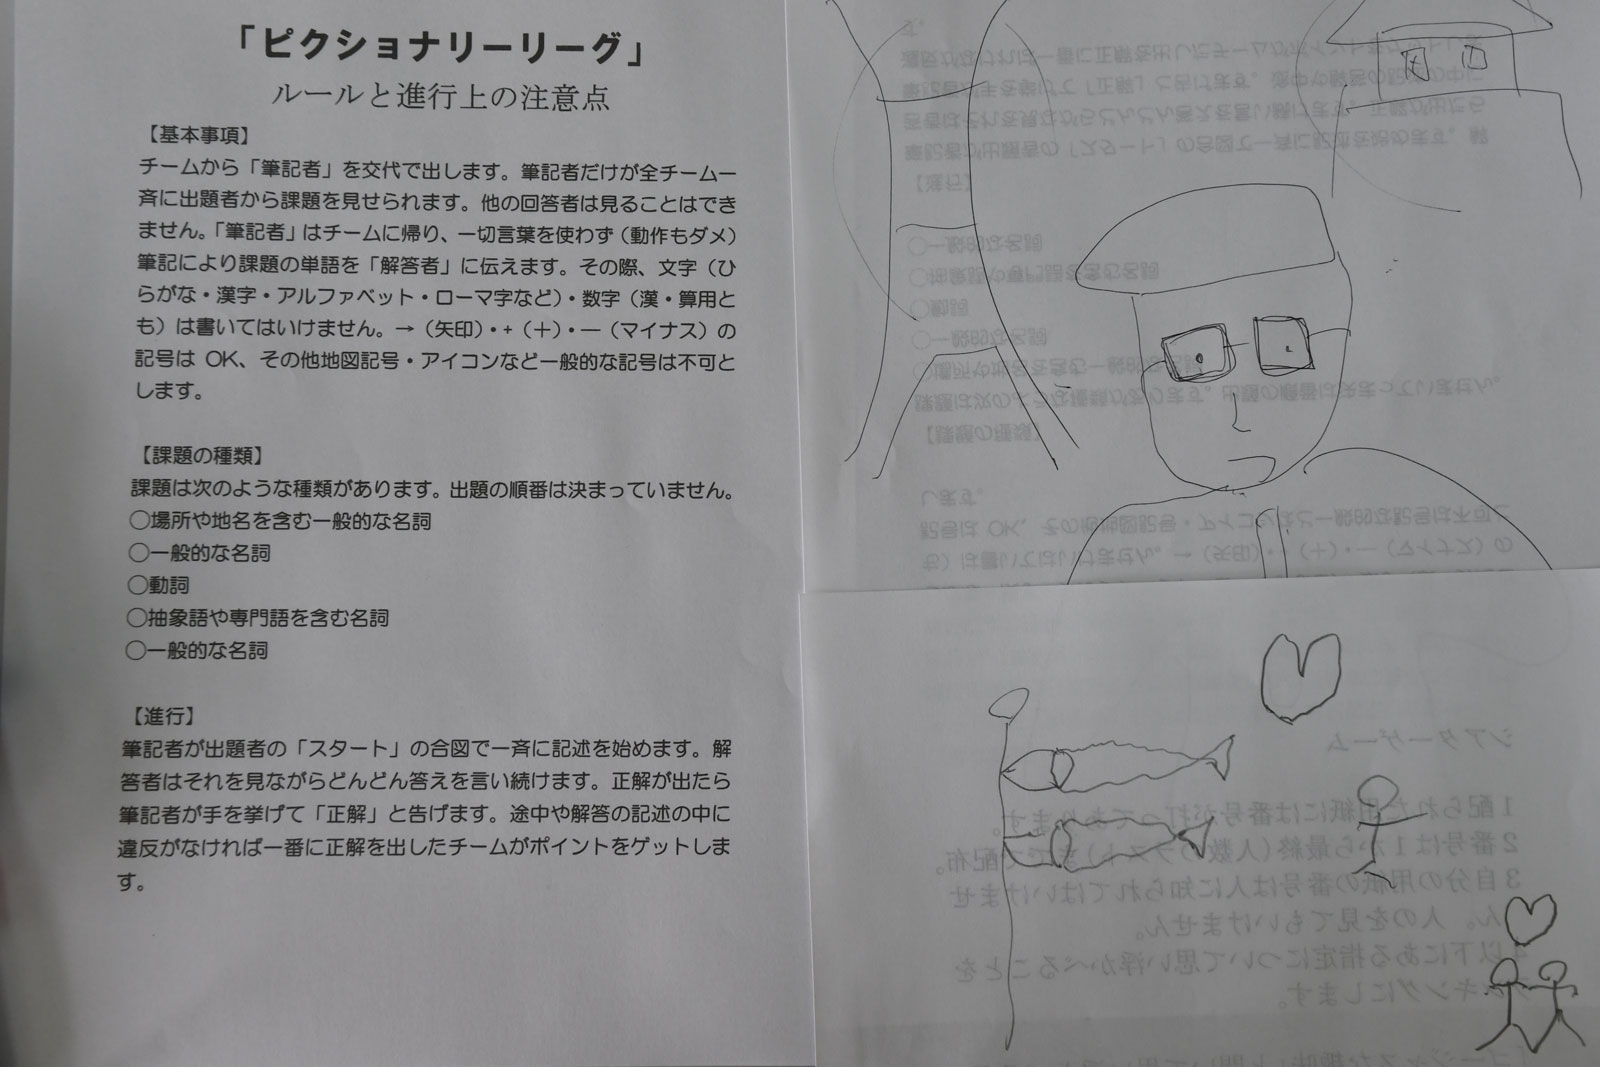 「ピクショナリーリーグ」
ルールと進行上の注意点
【基本事項】
チームから「筆記者」を交代で出します。筆記者だけが全チーム一
斉に出題者から課題を見せられます。他の回答者は見ることはでき
ません。「筆記者」はチームに帰り、一切言葉を使わず（動作もダメ）
筆記により課題の単語を「解答者」に伝えます。その際、文字（ひ
らがな・漢字・アルファベット・ローマ字など）・数字（漢・算用と
も）は書いてはいけません。→（矢印）・+（＋）・—（マイナス）の
記号は OK、その他地図記号・アイコンなど一般的な記号は不可と
します。
【課題の種類】
課題は次のような種類があります。出題の順番は決まっていません。
○場所や地名を含む一般的な名詞
○一般的な名詞
○動詞
○抽象語や専門語を含む名詞
○一般的な名詞
【進行】
筆記者が出題者の「スタート」の合図で一斉に記述を始めます。解
答者はそれを見ながらどんどん答えを言い続けます。正解が出たら
筆記者が手を挙げて「正解」と告げます。途中や解答の記述の中に
違反がなければ一番に正解を出したチームがポイントをゲットしま
す。
シアターゲーム
１配られた用紙には番号が打ってあります。
２番号は１から最終（人数のラスト）までで配布。
３自分の用紙の番号は人に知られてはいけませ
ん。人のを見てもいけません。
以下にある指定について思い浮かべることを